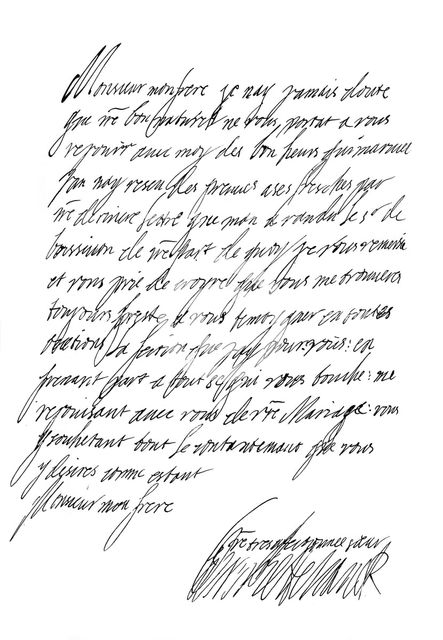 Monsieur mon frere je nay jamais doute
que vre bon naturel ne vous portat a vous
rejouir avec moy des bon heurs qui marive
jen nay reseu des preuves ases fresches par
vre derniere lettre que man a randu le sr de
de vre part de quoy je vous remersie
et vous prie de croyre que vous me trouveres
toujours preste a vous temoygner en toutes
ocations la fection que jay pour vous: en
prenant part a tout se qui vous touche: me
rejouisant avec vous de vre Mariage: vous
y souhetant tout le contantemant que vous
y desires comme estant
Monsieur mon frere
vre tres afectionnee soeur